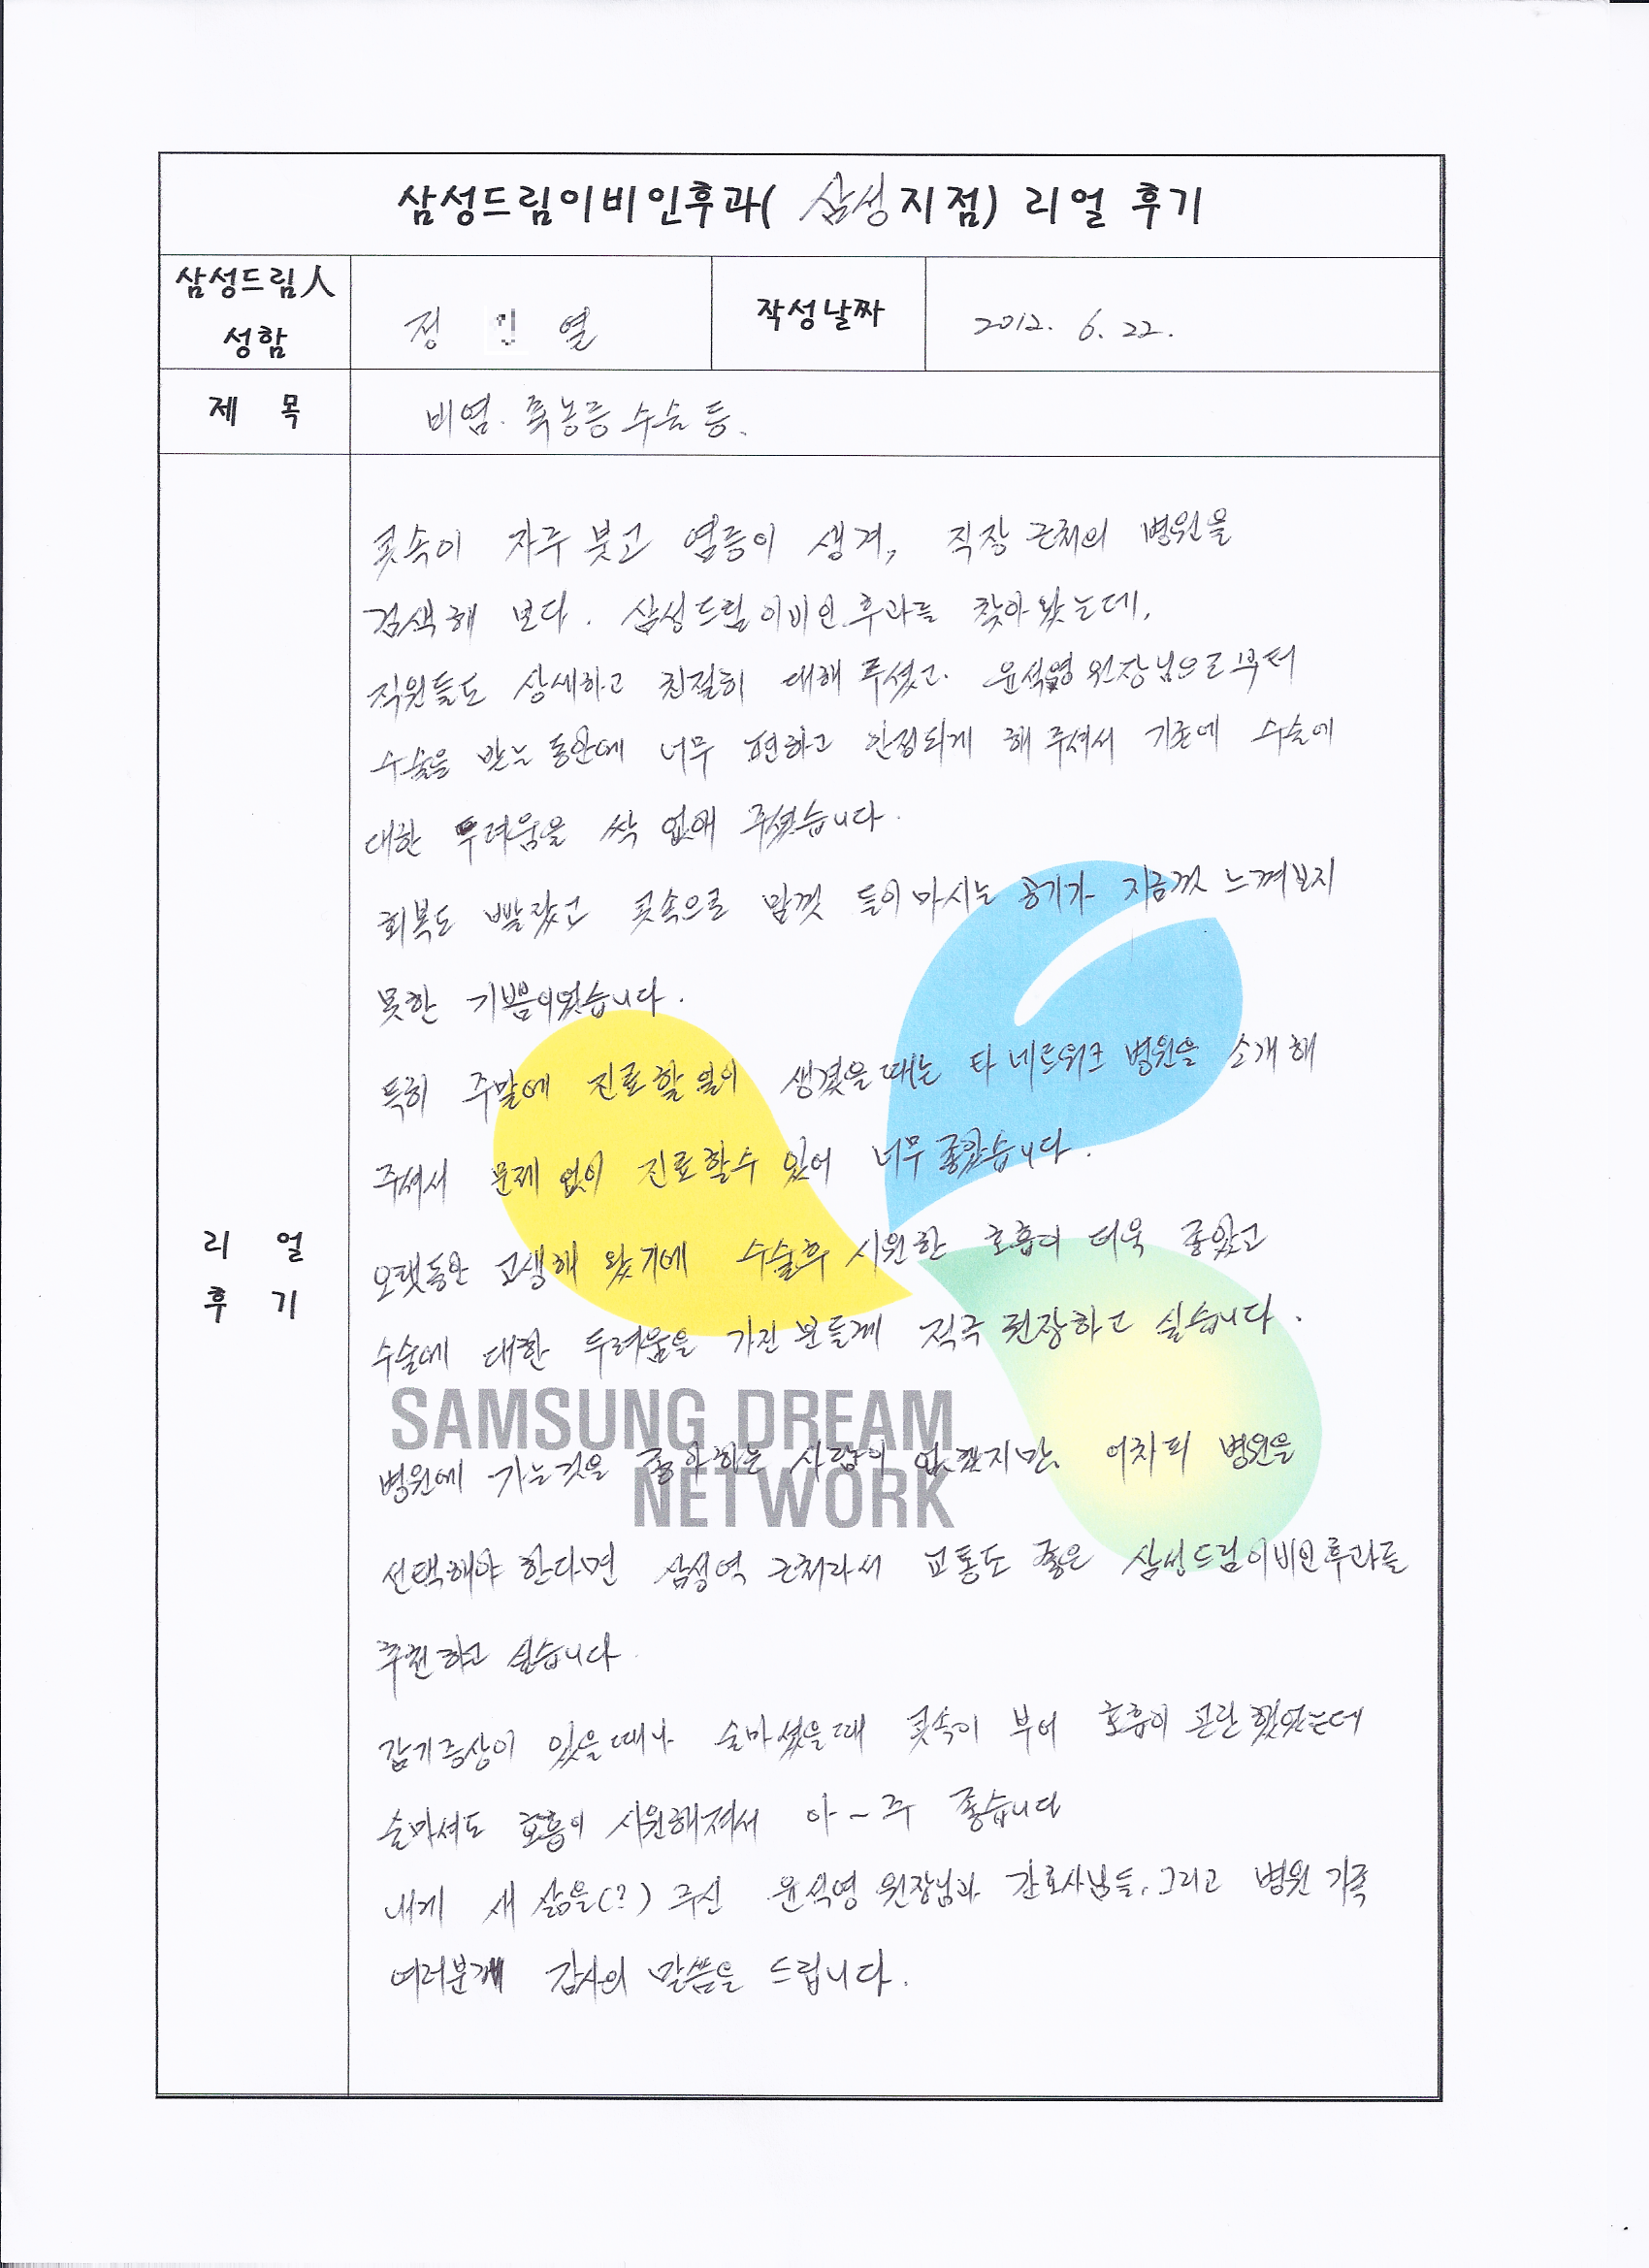 삼성드림이비인후과( 삼성지점) 리얼 후기
삼성드림人
성함
정 열
작성날짜
2012. 6. 22.
제 목
비염. 축농증 수술 등.
콧속이 자주 붓고 염증이 생겨, 직장 근처의 병원을
검색해 보다. 삼성드림이비인.후과를 찾아 왔는데,
직원들도 상세하고 친절히 대해 주셨고. 윤석영 원장님으로부터
수술을 받는 동안에 너무 편하고 안정되게 해 주셔서 기존에 수술에
대한 두려움을 싹 없애 주셨습니다.
회복도 빨랐고 콧속으로 맘껏 들이마시는 공기가 지금껏 느껴보지
못한 기쁨이었습니다.
특히 주말에 진료할 일이 생겼을 때는 타 네트워크 병원을 소개해
주셔서 문제 없이 진료할수 있어 너무 좋았습니다.
오랫동안 고생해 왔기에 수술후 시원한 호흡이 더욱 좋았고
수술에 대한 두려움을 가진 분들께 적극 권장하고 싶습니다.
SAMSUNG DREAM
NETWORK
병원에 가는것을 좋아하는 사람이 없겠지만, 어차피 병원을
선택해야 한다면 삼성역 근처라서 교통도 좋은 삼성드림이비인후과를
추천하고 싶습니다.
감기증상이 있을때나 술마셨을때 콧속이 부어 호흡이 곤란했었는데
술마셔도 호흡이 시원해져서 아~주 좋습니다
내게 새 삶을(?) 주신 윤석영 원장님과 간호사님들, 그리고 병원 가족
여러분께 감사의 말씀을 드립니다.
리 얼
후 기